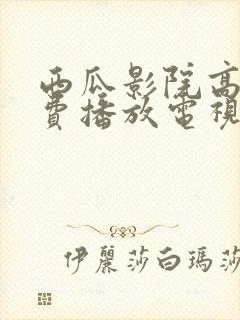 西瓜影院高
费播放電視
伊麗莎白瑪莎